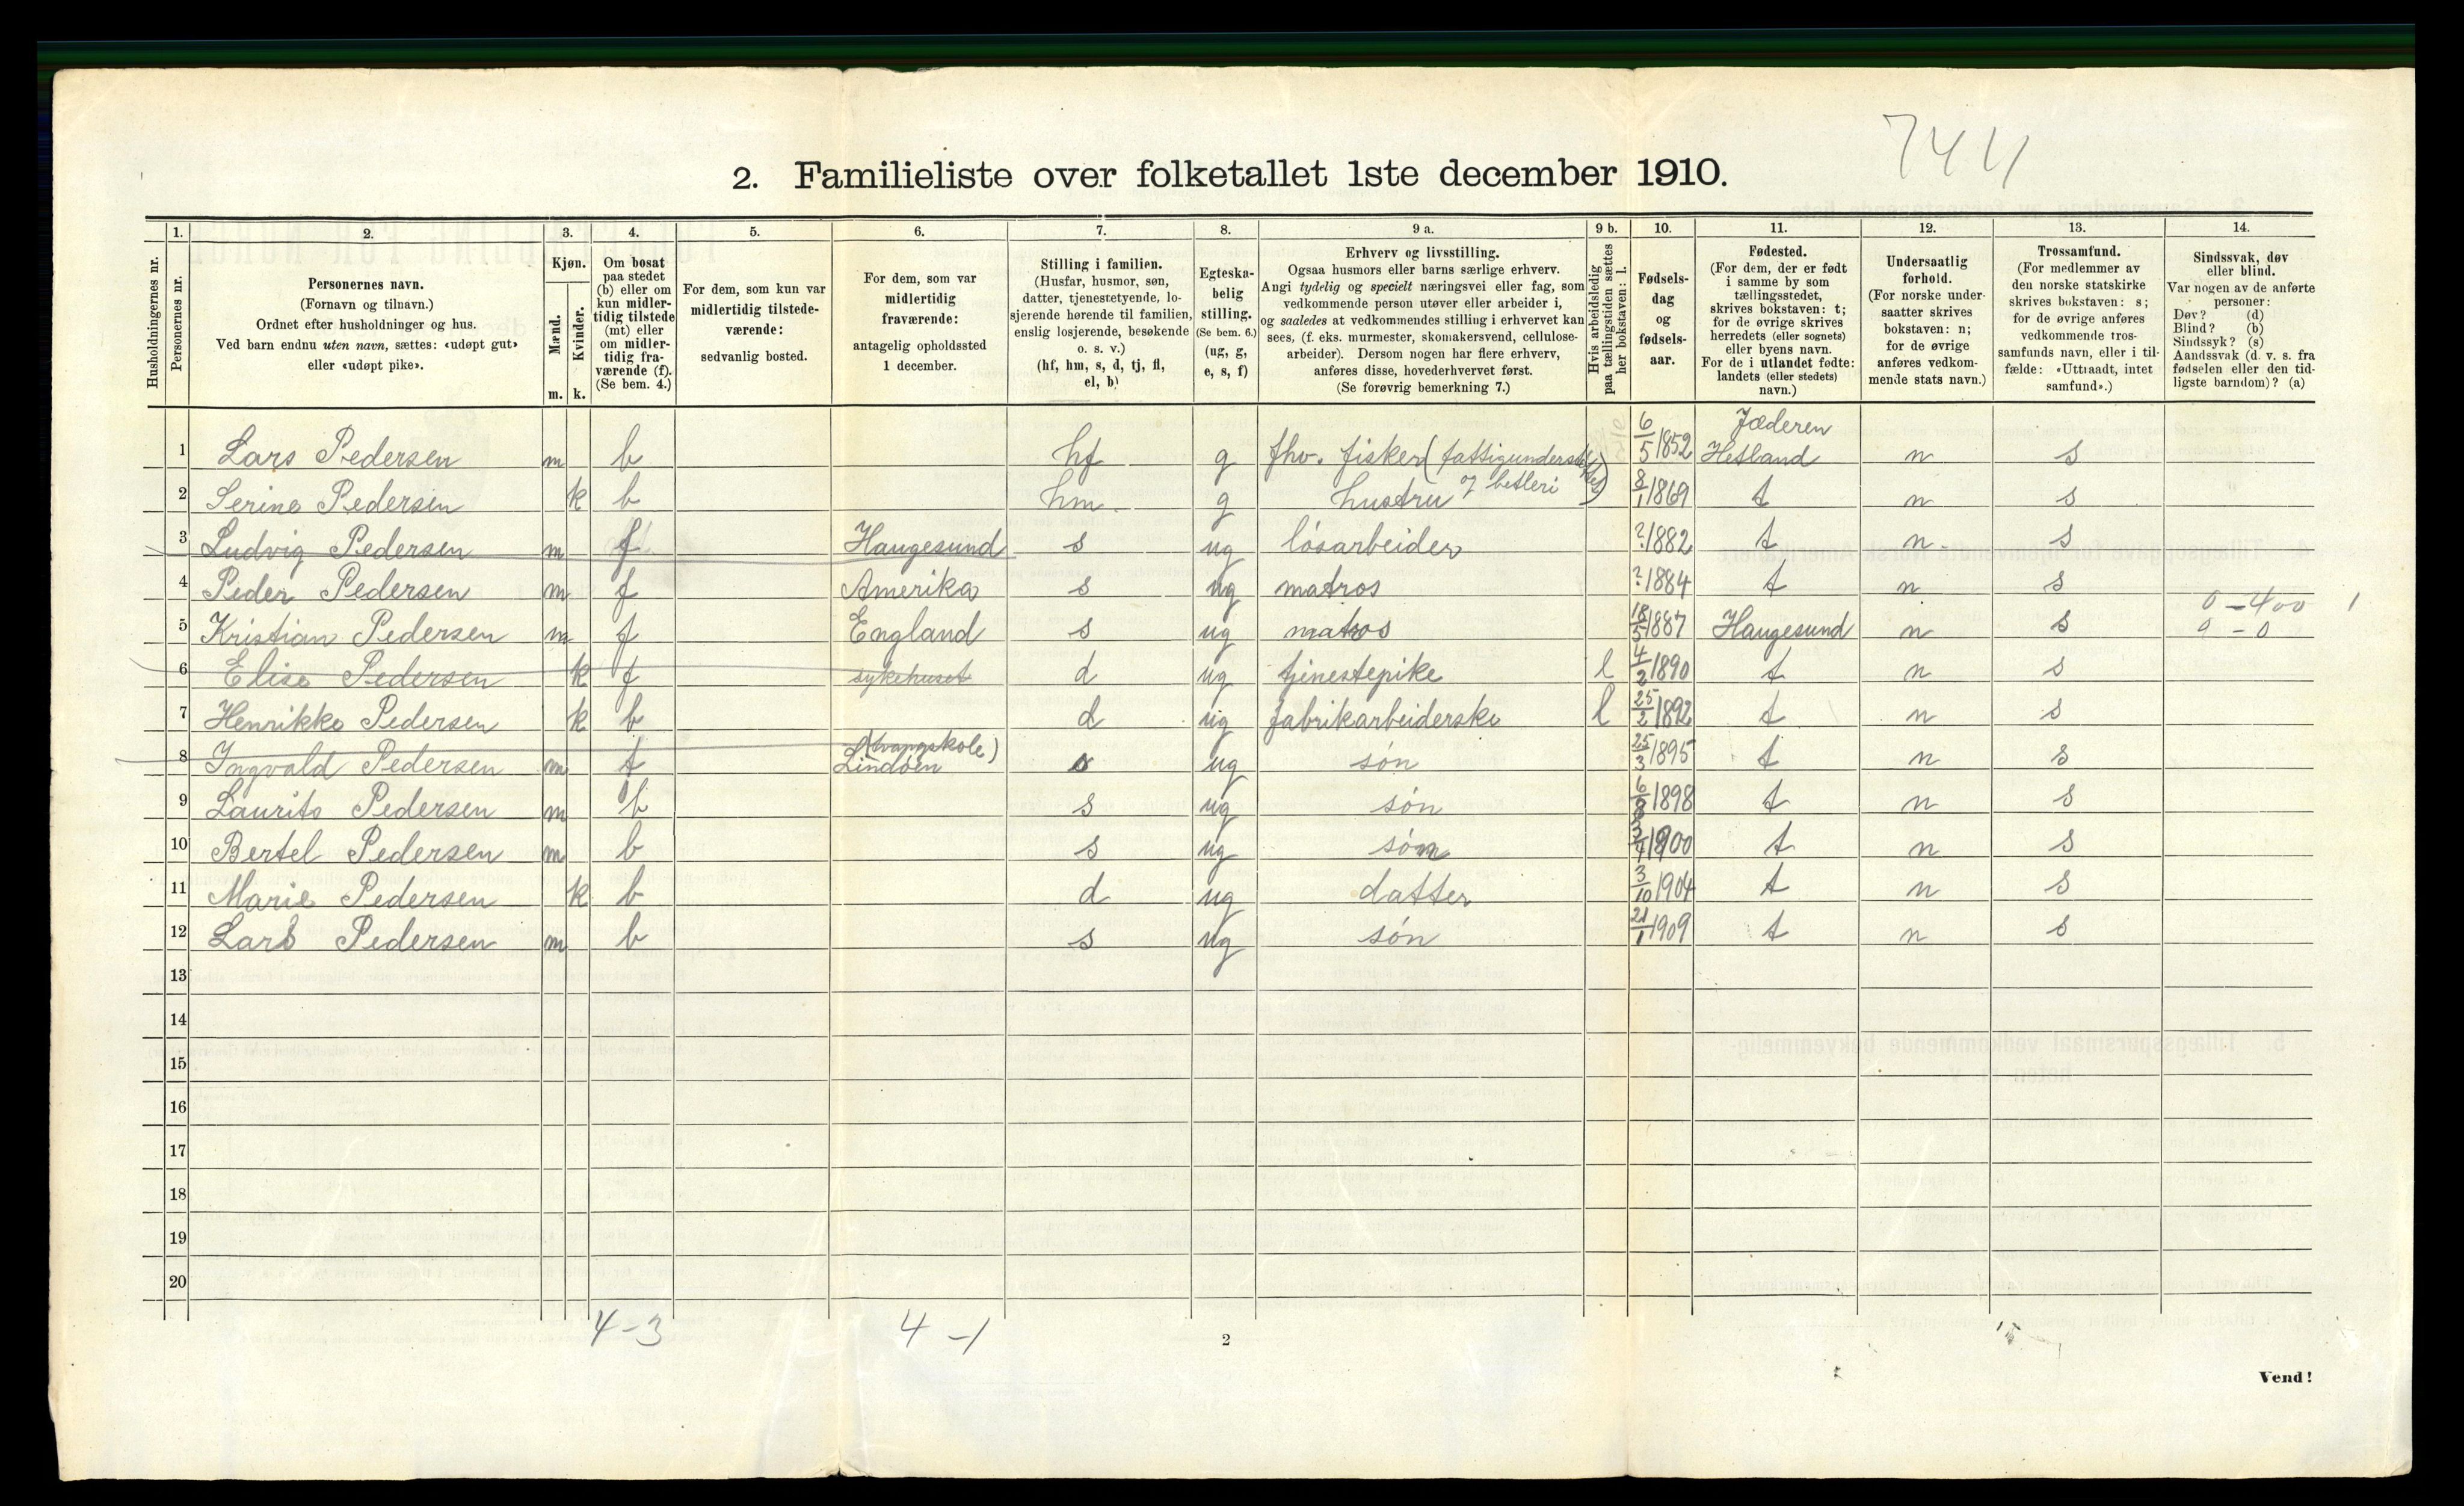 744
2. Familieliste over folketallet 1ste december 1910.
Husholdningernes nr.
1. Personernes nr.
2. Personernes navn.
(Fornavn og tilnavn.)
Ordnet efter husholdninger og hus.
Ved barn endnu uten navn, sættes: «udøpt gut»
eller «udøpt pike».
3. Kjøn.
Mænd. m.
Kvinder. k.
4. Om bosat
paa stedet
(b) eller om
kun midler-
tidig tilstede
(mt) eller
om midler-
tidig fra-
værende (f).
(Se bem. 4.)
5. For dem, som kun var
midlertidig tilstede-
værende:
sedvanlig bosted.
6. For dem, som var
midlertidig
fraværende:
antagelig opholdssted
1 december.
7. Stilling i familien.
(Husfar, husmor, søn,
datter, tjenestetyende, lo-
sjerende hørende til familien,
enslig losjerende, besøkende
o. s. v.)
(hf, hm, s, d, tj, fl,
el, b)
8. Egteska-
belig
stilling.
(Se bem. 6.)
(ug, g,
e, s, f)
9 a. Erhverv og livsstilling.
Ogsaa husmors eller barns særlige erhverv.
Angi tydelig og specielt næringsvei eller fag, som
vedkommende person utøver eller arbeider i,
og saaledes at vedkommendes stilling i erhvervet kan
sees, (f. eks. murmester, skomakersvend, cellulose-
arbeider). Dersom nogen har flere erhverv,
anføres disse, hovederhvervet først.
(Se forøvrig bemerkning 7.)
9 b. Hvis arbeidsledig
paa tællingstiden sættes
her bokstaven: l.
10. Fødsels-
dag
og
fødsels-
aar.
11. Fødested.
(For dem, der er født
i samme by som
tællingsstedet,
skrives bokstaven: t;
for de øvrige skrives
herredets (eller sognets)
eller byens navn.
For de i utlandet fødte:
landets (eller stedets)
navn.)
12. Undersaatlig
forhold.
(For norske under-
saatter skrives
bokstaven: n;
for de øvrige
anføres vedkom-
mende stats navn.)
13. Trossamfund.
(For medlemmer av
den norske statskirke
skrives bokstaven: s;
for de øvrige anføres
vedkommende tros-
samfunds navn, eller i til-
fælde: «Uttraadt, intet
samfund».)
14. Sindssvak, døv
eller blind.
Var nogen av de anførte
personer:
Døv? (d)
Blind? (b)
Sindssyk? (s)
Aandssvak (d. v. s. fra
fødselen eller den tid-
ligste barndom)? (a)
1 Lars Pedersen m b hf g fhv. fisker (fattigunderstøttet) 6/5 1852 Jæderen Hetland n s
2 Serine Pedersen k b hm g hustru og betleri 8/1 1869 t n s
3 Ludvig Pedersen m f Haugesund s ug løsarbeider ? 1882 t n s
4 Peder Pedersen m f Amerika s ug matros ? 1884 t n s
0 - 400 1
5 Kristian Pedersen m f England s ug matros 18/5 1887 Haugesund n s 0 - 0
6 Elise Pedersen k f sykehuset d ug tjenestepike l 4/2 1890 t n s
7 Henrikke Pedersen k b d ug fabrikarbeiderske l 25/2 1892 t n s
8 Ingvald Pedersen m f (tvangskole) Lindøen s ug søn 25/3 1895 t n s
9 Laurits Pedersen m b s ug søn 6/8 1898 t n s
10 Bertel Pedersen m b s ug søn 3/4 1900 t n s
11 Marie Pedersen k b d ug datter 3/10 1904 t n s
12 Lars Pedersen m b s ug søn 21/1 1909 t n s
13
14
15
16
17
18
19
20
4 - 3 4 - 1
2
Vend!